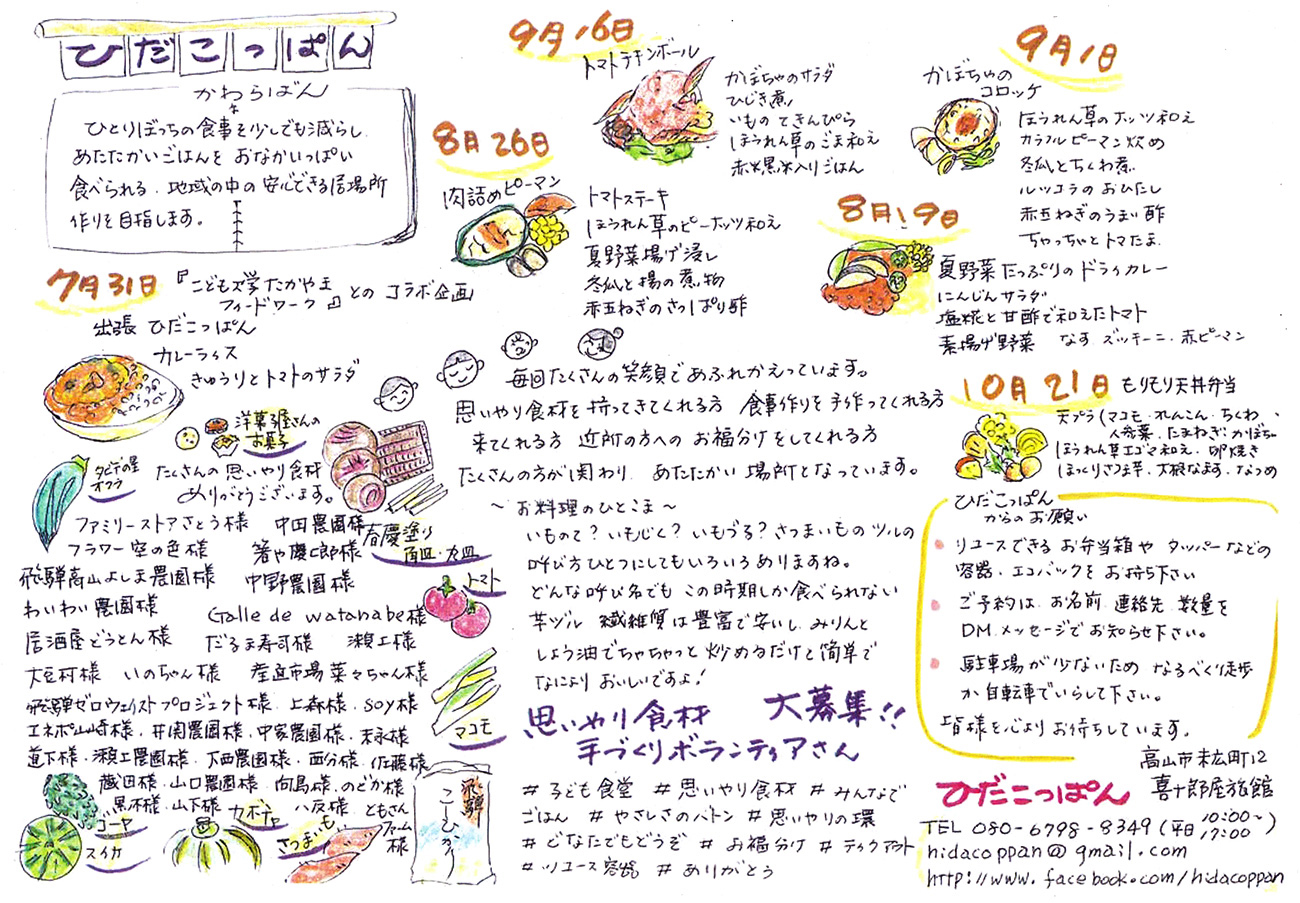 ひだこっぱん
かわらばん
ひとりぼっちの食事を少しでも減らし
あたたかいごはんを おなかいっぱい
食べられる、地域の中の安心できる居場所
作りを目指します。
7月31日
『こども大学たかやま
フィードワーク』との コラボ企画
出張 ひだこっぱん
カレーライス
きゅうりとトマトのサラダ
洋菓子屋さんの
お菓子
たくさんの思いやり食材
ありがとうございます。
ファミリーストアさとう様 中田農園様
フラワー空の色様 箸や慶七郎様
飛騨高山よしま農園様 中野農園様
わいわい農園様 Galle de watanabe様
居酒屋どうとん様 だるま寿司様 瀬上様
大豆村様 いのちゃん様 産直市場菜々ちゃん様
飛騨ゼロウェイストプロジェクト様、上森様、soy様
エネポ山崎様、井関農園様、中家農園様、末永様
道下様、瀬上農園様、下西農園様、西分様、佐藤様
蔵田様、山口農園様、向島様、のどか様
黒木様、山下様、八反様、ともさん
ファーム
様
春慶塗り
角皿・丸皿
トマト
マコモ
ゴーヤ
スイカ
カボチャ
さつまいも
飛騨
こしひかり
8月26日
肉詰めピーマン
トマトステーキ
ほうれん草のピーナッツ和え
夏野菜揚げ浸し
冬瓜と揚の煮物
赤玉ねぎのさっぱり酢
9月16日
トマトチキンボール
かぼちゃのサラダ
ひじき煮
いものてきんぴら
ほうれん草のごま和え
赤米黒米入りごはん
9月1日
かぼちゃの
コロッケ
ほうれん草のナッツ和え
カラフルピーマン炒め
冬瓜とちくわ煮
ルッコラのおひたし
赤玉ねぎのうまい酢
ちゃっちゃとトマたま
8月19日
夏野菜たっぷりのドライカレー
にんじんサラダ
塩糀と甘酢で和えたトマト
素揚げ野菜 なす、ズッキーニ、赤ピーマン
毎回たくさんの笑顔であふれかえっています。
思いやり食材を持ってきてくれる方 食事作りを手作ってくれる方
来てくれる方 近所の方への お福分けをしてくれる方
たくさんの方が関わり、あたたかい場所となっています。
～お料理のひとこま～
いものて?いもじく?いもづる?さつまいものツルの
呼び方ひとつにしてもいろいろありますね。
どんな呼び名でも この時期しか食べられない
芋ヅル 繊維質は豊富で安いし、みりんと
しょう油でちゃちゃっと炒めるだけと簡単で
なにより おいしいですよ!
思いやり食材 大募集!!
手づくりボランティアさん
#子ども食堂 #思いやり食材 #みんなで
ごはん #やさしさのバトン #思いやりの環
#どなたでもどうぞ #お福分け #テイクアウト
#リユース容器 #ありがとう
10月21日 もりもり天丼弁当
天プラ(マコモ、れんこん、ちくわ、
人参葉、たまねぎ、かぼちゃ
ほうれん草エゴマ和え、卵焼き
ほっくりさつま芋、大根なます、なつめ
ひだこっぱん
からのお願い
リユースできる お弁当箱や タッパーなどの
容器、エコバックをお持ち下さい
ご予約は、お名前、連絡先、数量を
DM、メッセージでお知らせ下さい。
駐車場が少ないため なるべく徒歩
か自転車でいらして下さい。
皆様を心よりお待ちしています。
高山市末広町12
喜十郎屋旅館
ひだこっぱん
TEL 080-6798-8349(平日10:00~17:00)
hidacoppan@gmail.com
http://www.facebook.com/hidacoppan